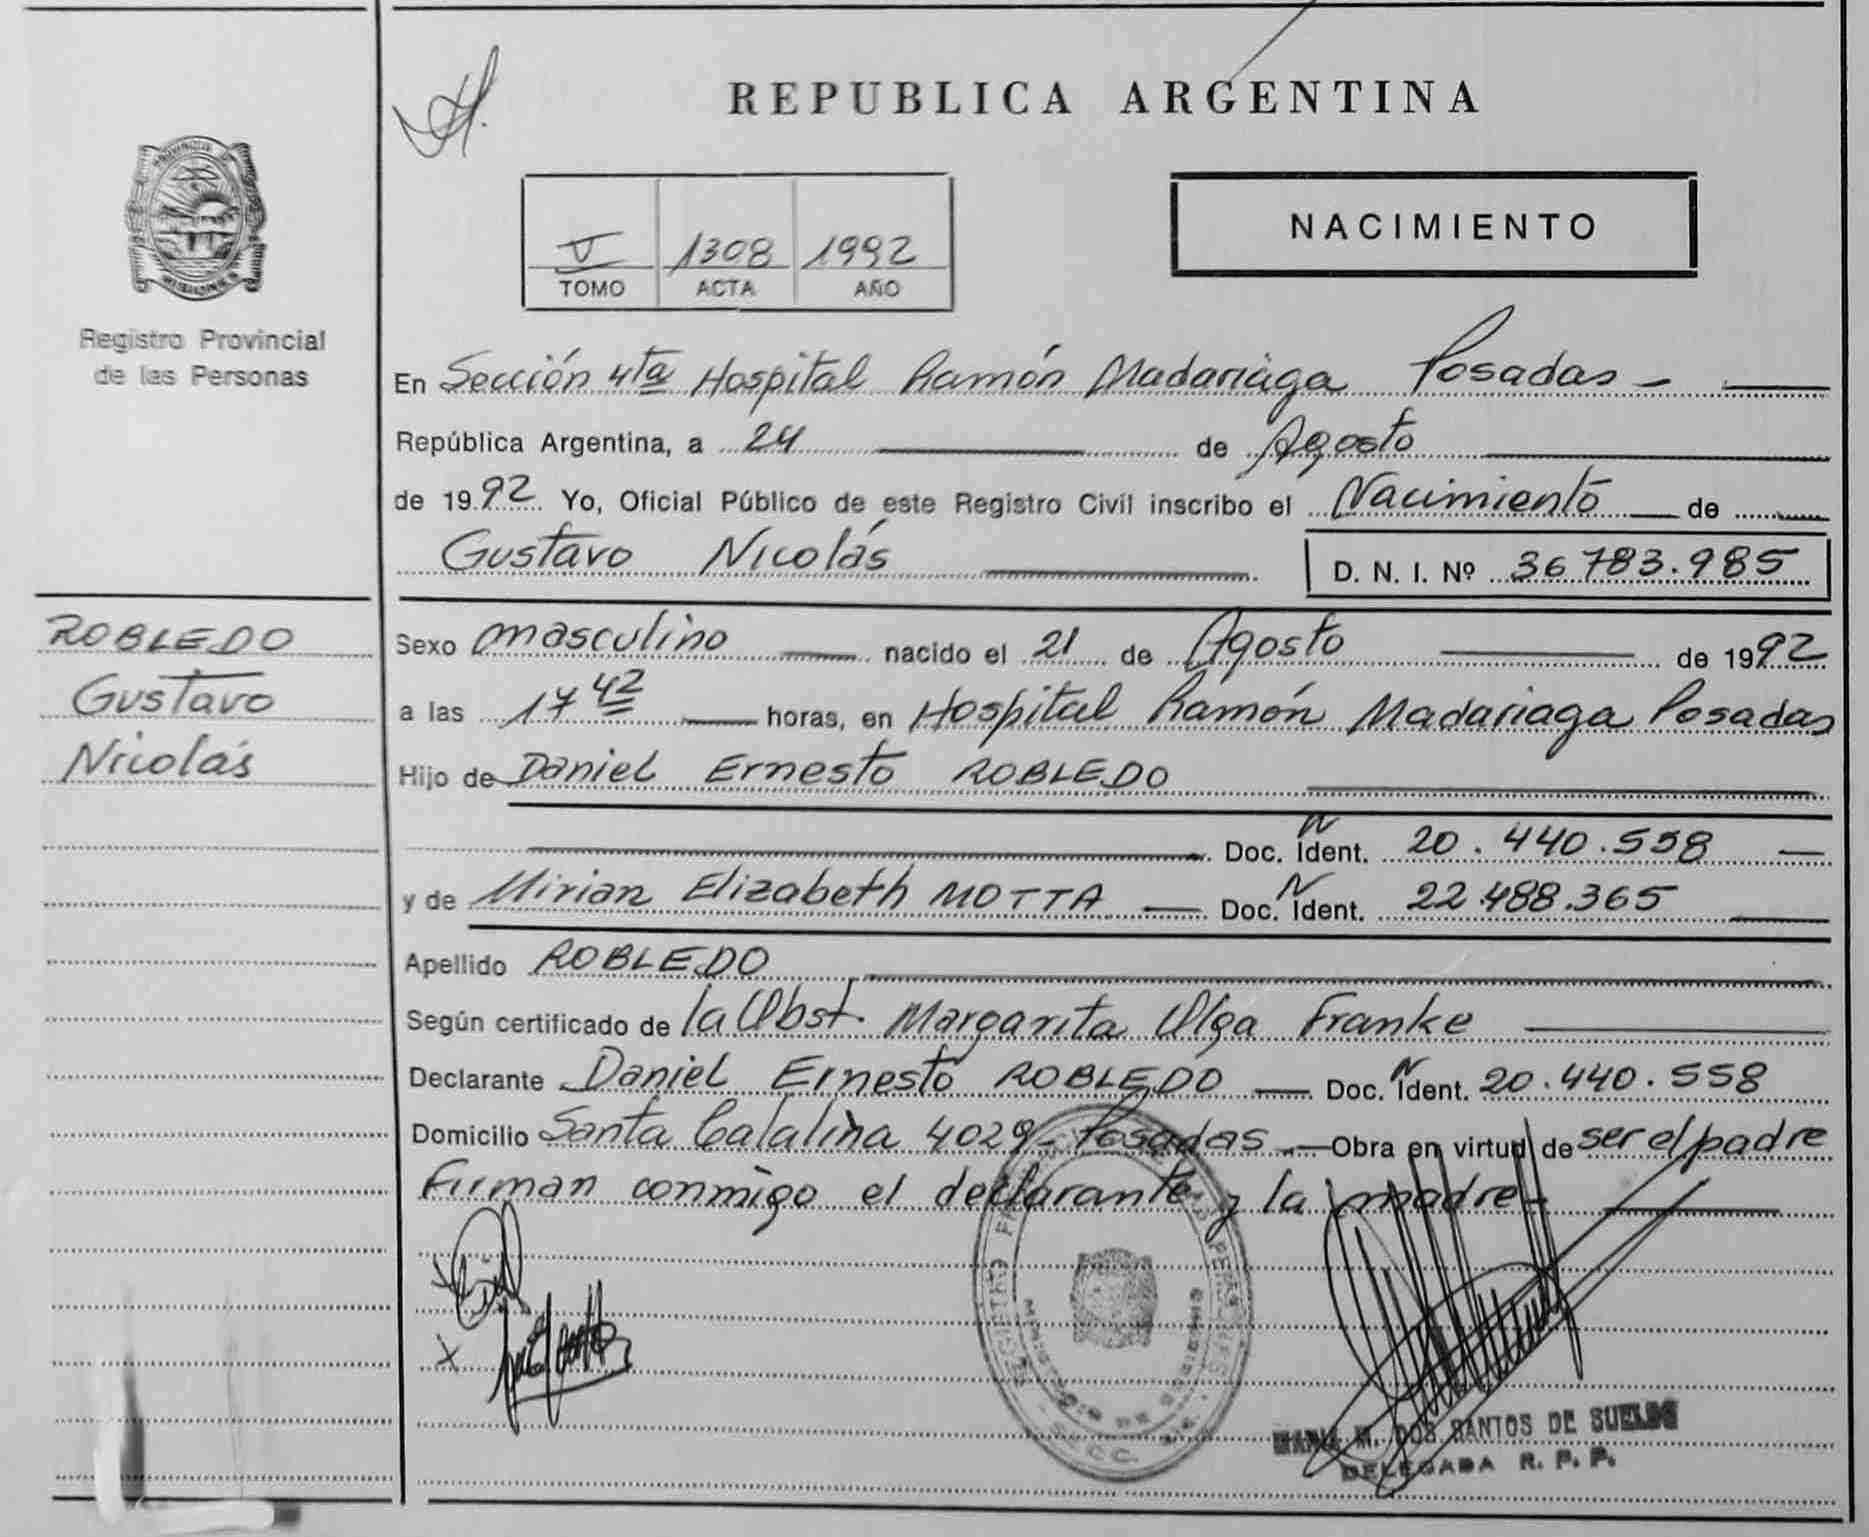 REPUBLICA ARGENTINA
PROVINCIA DE
MISIONES
Registro Provincial
de las Personas
V 1308 1992
TOMO ACTA AÑO
NACIMIENTO
En Sección 4ta Hospital Ramón Madariaga Posadas -
República Argentina, a 24 de Agosto
de 1992 Yo, Oficial Público de este Registro Civil inscribo el Nacimiento de
Gustavo Nicolás
D. N. I. Nº 36783.985
ROBLEDO
Gustavo
Nicolás
Sexo masculino nacido el 21 de Agosto de 1992
a las 17 42 horas, en Hospital Ramón Madariaga Posadas
Hijo de Daniel Ernesto ROBLEDO
Doc. N Ident. 20.440.558
y de Mirian Elizabeth MOTTA Doc. N Ident. 22.488.365
Apellido ROBLEDO
Según certificado de la Obst. Margarita Olga Franke
Declarante Daniel Ernesto ROBLEDO Doc. N Ident. 20.440.558
Domicilio Santa Catalina 4029 - Posadas Obra en virtud de ser el padre
Firman conmigo el declarante y la madre -
MARIA M. DOS SANTOS DE SUELDO
DELEGADA R. P. P.